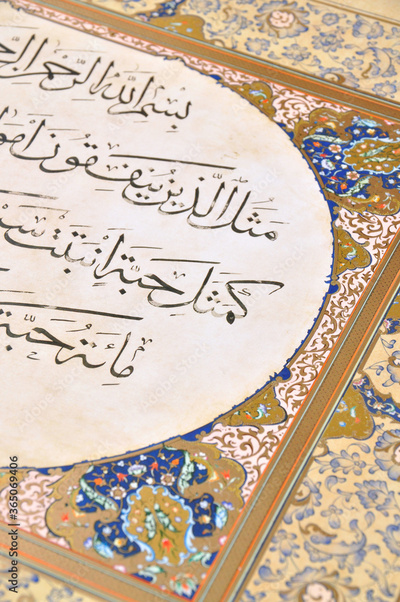 بِسْمِ اللهِ الرَّحْمٰنِ
مَثَلُ الَّذِينَ يُنْفِقُونَ
كَمَثَلِ حَبَّةٍ اَنْبَتَتْ
مِائَةُ حَبَّةٍ
Adobe Stock | #365069406